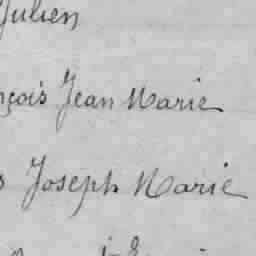 Julien
nçois Jean Marie
Joseph Marie